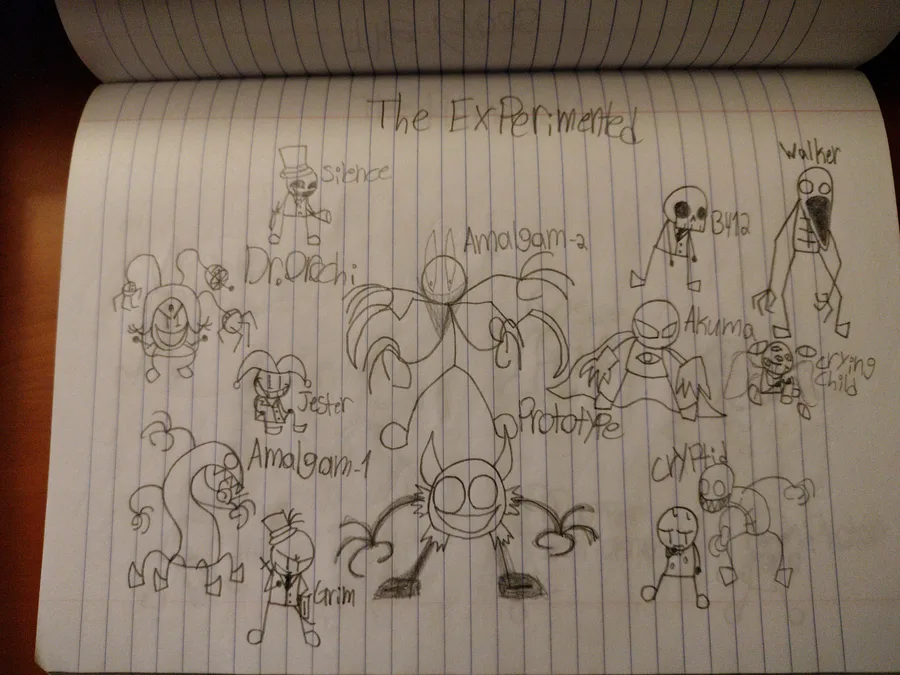 The Experimented
Silence
Walker
B412
Amalgam-2
Dr.Orochi
Akuma
Crying
Child
Jester
Prototype
Amalgam-1
Cryptid
Grim